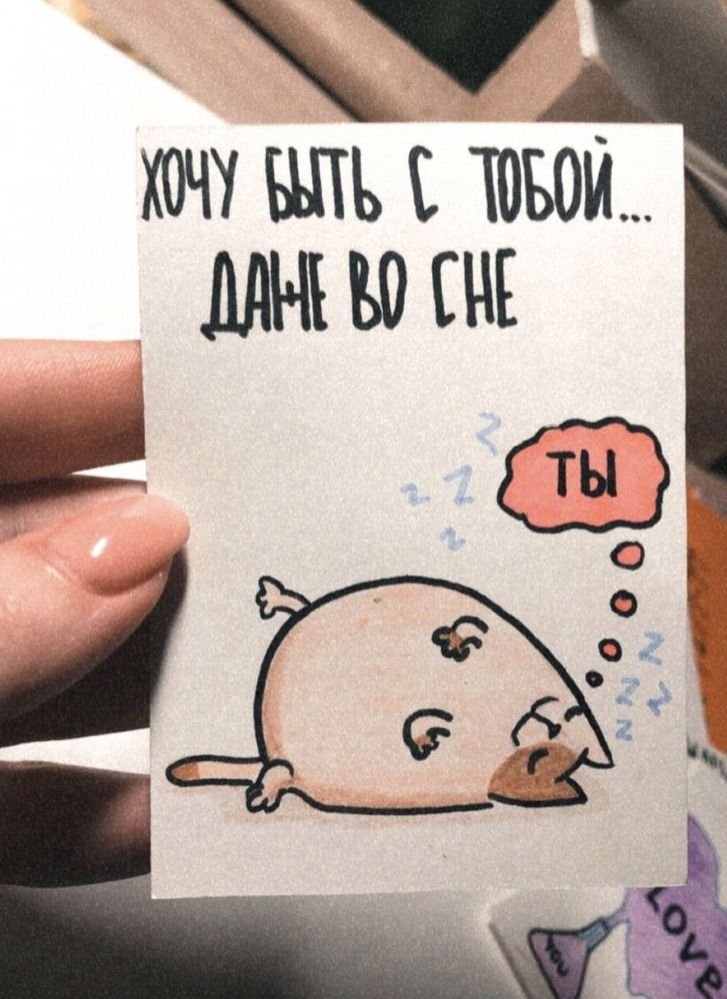 ХОЧУ БЫТЬ С ТОБОЙ...
ДАЖЕ ВО СНЕ
z
z z
z
ТЫ
z
z z
z
LOVE
YOU